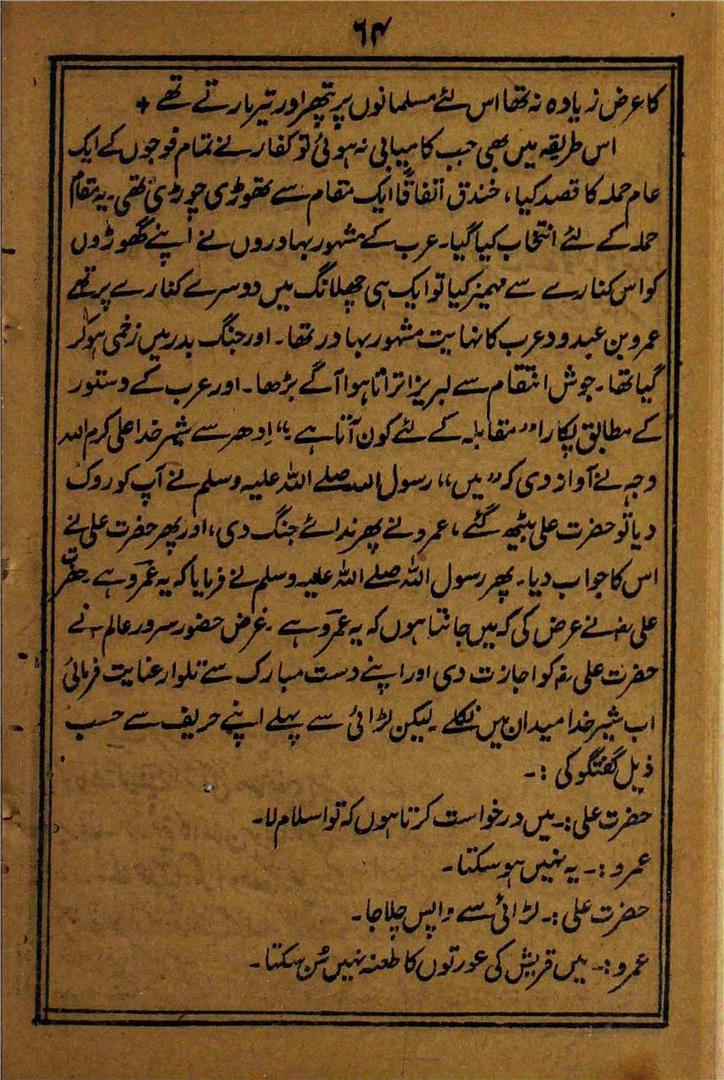 ۶۴
کا عرض زیادہ نہ تھا اس لئے مسلمانوں پر پتھر اور تیر مارتے تھے +
اس طریقہ میں بھی جب کامیابی نہ ہوئی تو کفار نے تمام فوجوں کے ایک
عام حملہ کا قصد کیا، خندق اتفاقاً ایک مقام سے تھوڑی چوڑی تھی۔ یہ مقام
حملہ کے لئے انتخاب کیا گیا۔ عرب کے مشہور بہادروں نے اپنے گھوڑوں
کو اس کنارے سے مہمیز کیا تو ایک ہی چھلانگ میں دوسرے کنارے پر تھے
عمرو بن عبدود عرب کا نہایت مشہور بہادر تھا۔ اور جنگ بدر میں زخمی ہوکر
گیا تھا۔ جوش انتقام سے لبریز اتراتا ہوا آگے بڑھا۔ اور عرب کے دستور
کے مطابق پکارا "مقابلہ کے لئے کون آتا ہے" اِدھر سے شیر خدا علی کرم اللہ
وجہہ نے آواز دی کہ "میں" رسول اللہ صلے اللہ علیہ وسلم نے آپ کو روک
دیا تو حضرت علی بیٹھ گئے، عمرو نے پھر ندائے جنگ دی، اور پھر حضرت علی نے
اس کا جواب دیا۔ پھر رسول اللہ صلے اللہ علیہ وسلم نے فرمایا کہ یہ عمرو ہے۔ حضرت
علی رضہ نے عرض کی کہ میں جانتا ہوں کہ یہ عمرو ہے۔ غرض حضور سرور عالم نے
حضرت علی رضہ کو اجازت دی اور اپنے دست مبارک سے تلوار عنایت فرمائی
اب شیر خدا میدان میں نکلے۔ لیکن لڑائی سے پہلے اپنے حریف سے حسب
ذیل گفتگو کی :۔
حضرت علی :۔ میں درخواست کرتا ہوں کہ تو اسلام لا۔
عمرو :۔ یہ نہیں ہوسکتا۔
حضرت علی :۔ لڑائی سے واپس چلا جا۔
عمرو :۔ میں قریش کی عورتوں کا طعنہ نہیں سُن سکتا۔